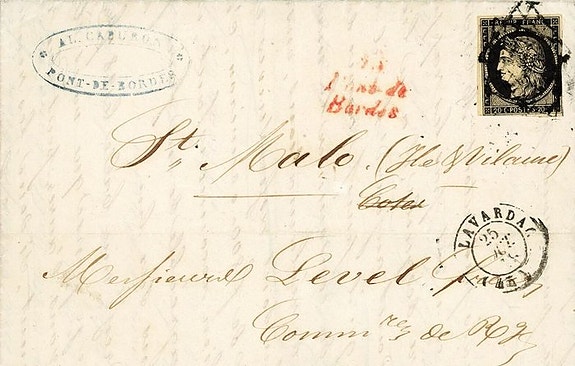 AL. CABURON
PONT-DE-BORDES
Pont de
Bordes
REPUB. FRANC.
20 C. POSTES 20
St. Malo (Ile & Vilaine)
Cotes
LAVARDAC
25
Messieurs Level frères
Comm.res de Rg